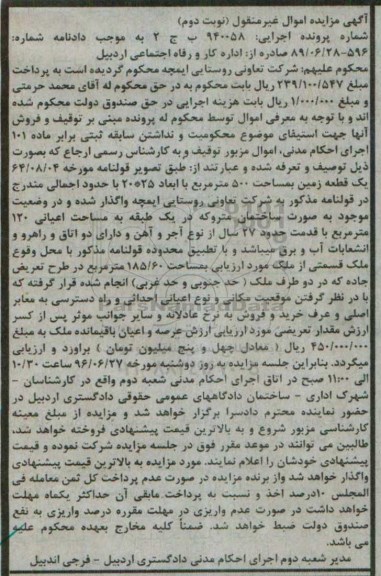 آگهی مزایده اموال غیرمنقول (نوبت دوم)
شماره پرونده اجرایی: ۹۴۰۰۵۸ ب ج ۲ به موجب دادنامه شماره:
۵۹۶-۸۹/۰۶/۲۸ صادره از: اداره کار و رفاه اجتماعی اردبیل
محکوم علیهم: شرکت تعاونی روستایی ایمچه محکوم گردیده است به پرداخت
مبلغ ۲۳۹/۱۰۰/۵۴۷ ریال بابت محکوم به در حق محکوم له آقای محمد حرمتی
و مبلغ ۱/۰۰۰/۰۰۰ ریال بابت هزینه اجرایی در حق صندوق دولت محکوم شده
اند و با توجه به معرفی اموال توسط محکوم له پرونده مبنی بر توقیف و فروش
آنها جهت استیفای موضوع محکومیت و نداشتن سابقه ثبتی برابر ماده ۱۰۱
اجرای احکام مدنی، اموال مزبور توقیف و به کارشناس رسمی ارجاع که بصورت
ذیل توصیف و تعرفه شده و عبارتند از: طبق تصویر قولنامه مورخه ۶۴/۰۸/۰۴
یک قطعه زمین بمساحت ۵۰۰ مترمربع با ابعاد ۲۵*۲۰ با حدود اجمالی متدرج
در قولنامه مذکور به شرکت تعاونی روستایی ایمچه واگذار شده و در وضعیت
موجود به صورت ساختمان متروکه در یک طبقه به مساحت اعیانی ۱۲۰
مترمربع با قدمت حدود ۲۷ سال از نوع آجر و آهن و دارای دو اتاق و راهرو و
انشعابات آب و برق میباشد و با تطبیق محدوده قولنامه مذکور با محل وقوع
ملک قسمتی از ملک مورد ارزیابی بمساحت ۱۸۵/۶۰ مترمربع در طرح تعریض
جاده که در دو طرف ملک ( حد جنوبی و حد غربی) انجام شده قرار گرفته که
با در نظر گرفتن موقعیت مکانی و نوع اعیانی احداثی و راه دسترسی به معابر
اصلی و عرف خرید و فروش به نرخ عادلانه و سایر جوانب موثر پس از کسر
ارزش مقدار تعریضی مورد ارزیابی ارزش عرصه و اعیان باقیمانده ملک به مبلغ
۴۵۰/۰۰۰/۰۰۰ ریال ( معادل چهل و پنج میلیون تومان ) براورد و ارزیابی
میگردد. بنابراین جلسه مزایده به روز دوشنبه مورخه ۹۶/۰۶/۲۷ ساعت ۱۰/۳۰
الی ۱۱:۰۰ صبح در اتاق اجرای احکام مدنی شعبه دوم واقع در کارشناسان -
شهرک اداری - ساختمان دادگاههای عمومی حقوقی دادگستری اردبیل در
حضور نماینده محترم دادسرا برگزار خواهد شد و مزایده از مبلغ معینه
کارشناسی مزبور شروع و به بالاترین قیمت پیشنهادی فروخته خواهد شد.
طالبین می توانند در موعد مقرر فوق در جلسه مزایده شرکت نموده و قیمت
پیشنهادی خودشان را اعلام نمایند. مورد مزایده به بالاترین قیمت پیشنهادی
واگذار خواهد شد واز برنده مزایده در صورت عدم پرداخت کل ثمن معامله فی
المجلس ۱۰درصد اخذ و نسبت به پرداخت مابقی آن حداکثر یکماه مهلت
خواهد داشت در صورت عدم واریزی در مهلت مقرره درصد واریزی به نفع
صندوق دولت ضبط خواهد شد. ضمناً کلیه مخارج بعهده محکوم علیه
می باشد.
مدیر شعبه دوم اجرای احکام مدنی دادگستری اردبیل - فرجی اندبیل